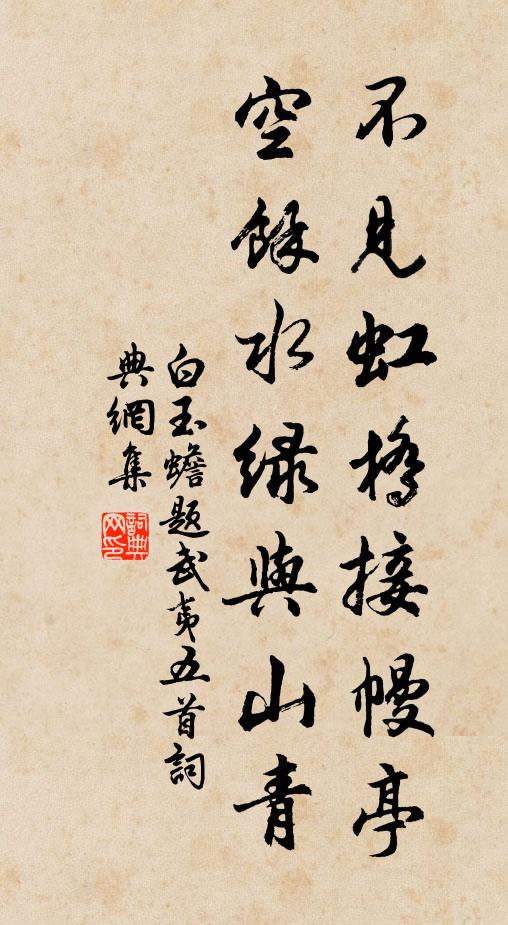 不見虹橋接幔亭
空餘水綠與山青
白玉蟾題武夷五首詞
典網集
詞典網印